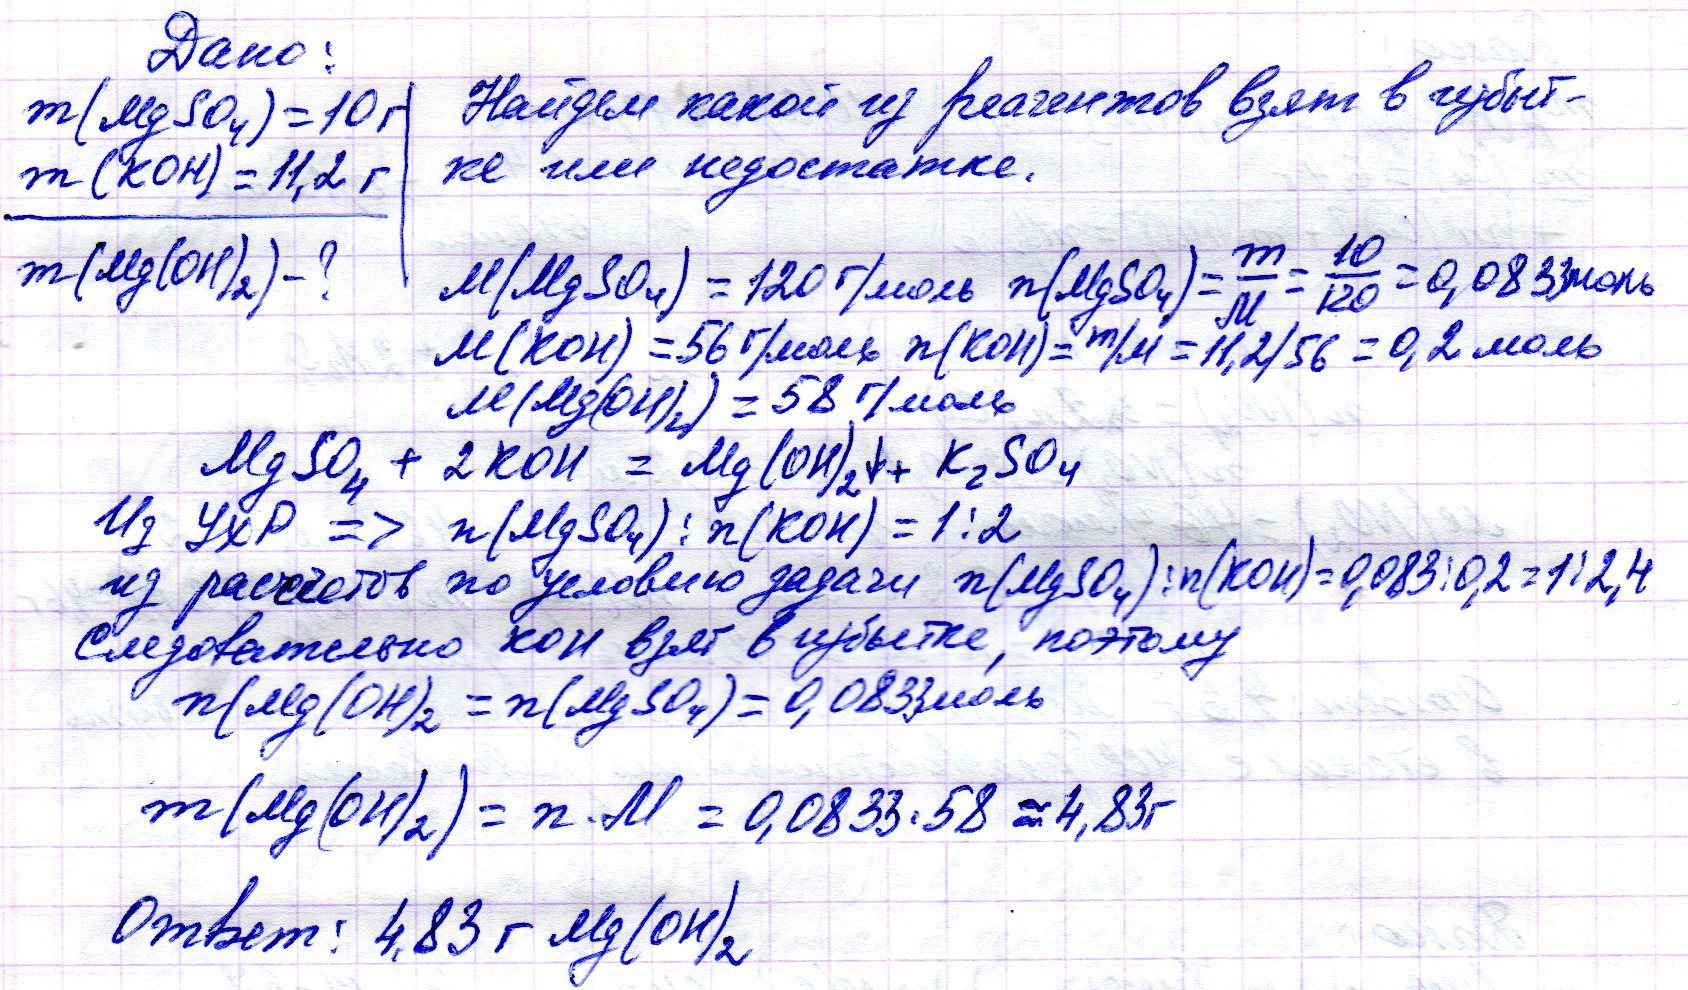 Дано:
m(MgSO₄)=10 г
m(KOH)=11,2 г
m(Mg(OH)₂)-?
Найдем какой из реагентов взят в избыт-
ке или недостатке.
M(MgSO₄) = 120 г/моль n(MgSO₄)= m/M = 10/120 = 0,0833моль
M(KOH) = 56 г/моль n(KOH)= m/M = 11,2/56 = 0,2 моль
M(Mg(OH)₂) = 58 г/моль
MgSO₄ + 2KOH = Mg(OH)₂↓ + K₂SO₄
Из УХР => n(MgSO₄) : n(KOH) = 1:2
из расчетов по условию задачи n(MgSO₄):n(KOH)=0,083:0,2=1:2,4
Следовательно KOH взят в избытке, поэтому
n(Mg(OH)₂ = n(MgSO₄) = 0,0833моль
m(Mg(OH)₂) = n·M = 0,0833·58 ≈ 4,83г
Ответ: 4,83 г Mg(OH)₂